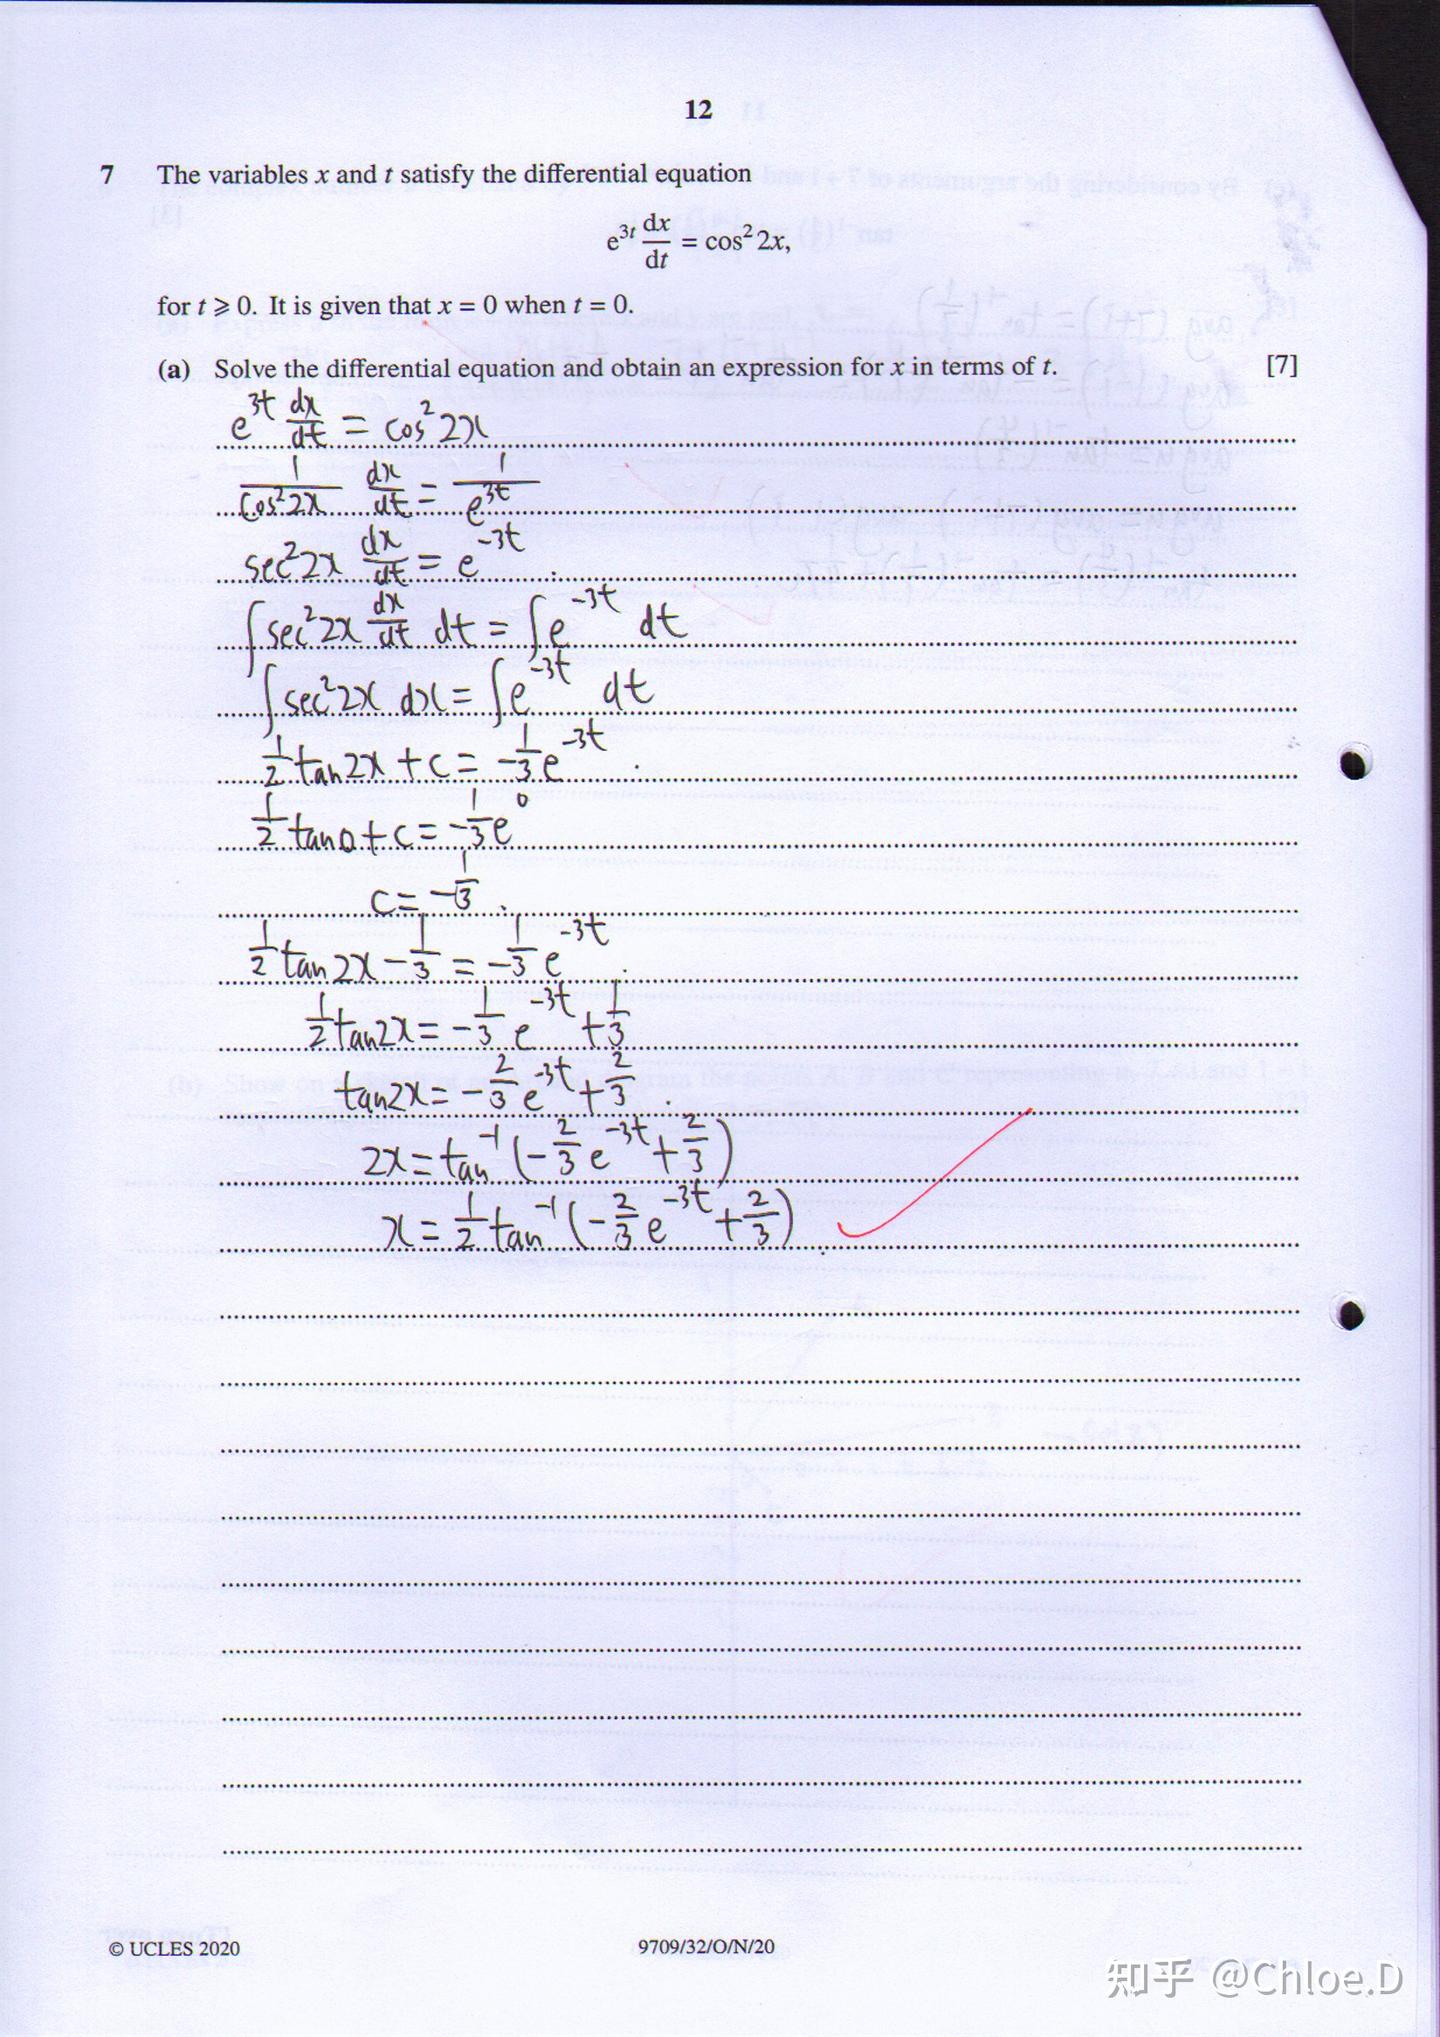 12
7 The variables x and t satisfy the differential equation
e^{3t} dx/dt = cos² 2x,
for t ⩾ 0. It is given that x = 0 when t = 0.
(a) Solve the differential equation and obtain an expression for x in terms of t. [7]
e^{3t} dx/dt = cos² 2x
1/cos² 2x dx/dt = 1/e^{3t}
sec² 2x dx/dt = e^{-3t}
∫ sec² 2x dx/dt dt = ∫ e^{-3t} dt
∫ sec² 2x dx = ∫ e^{-3t} dt
1/2 tan 2x + c = -1/3 e^{-3t}
1/2 tan 0 + c = -1/3 e^0
c = -1/3
1/2 tan 2x - 1/3 = -1/3 e^{-3t}
1/2 tan 2x = -1/3 e^{-3t} + 1/3
tan 2x = -2/3 e^{-3t} + 2/3
2x = tan^{-1} (-2/3 e^{-3t} + 2/3)
x = 1/2 tan^{-1} (-2/3 e^{-3t} + 2/3)
© UCLES 2020 9709/32/O/N/20
知乎 @Chloe.D